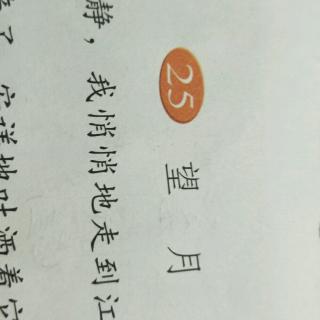 25 望月
静，我悄悄地走到江
了，安详地吐洒着